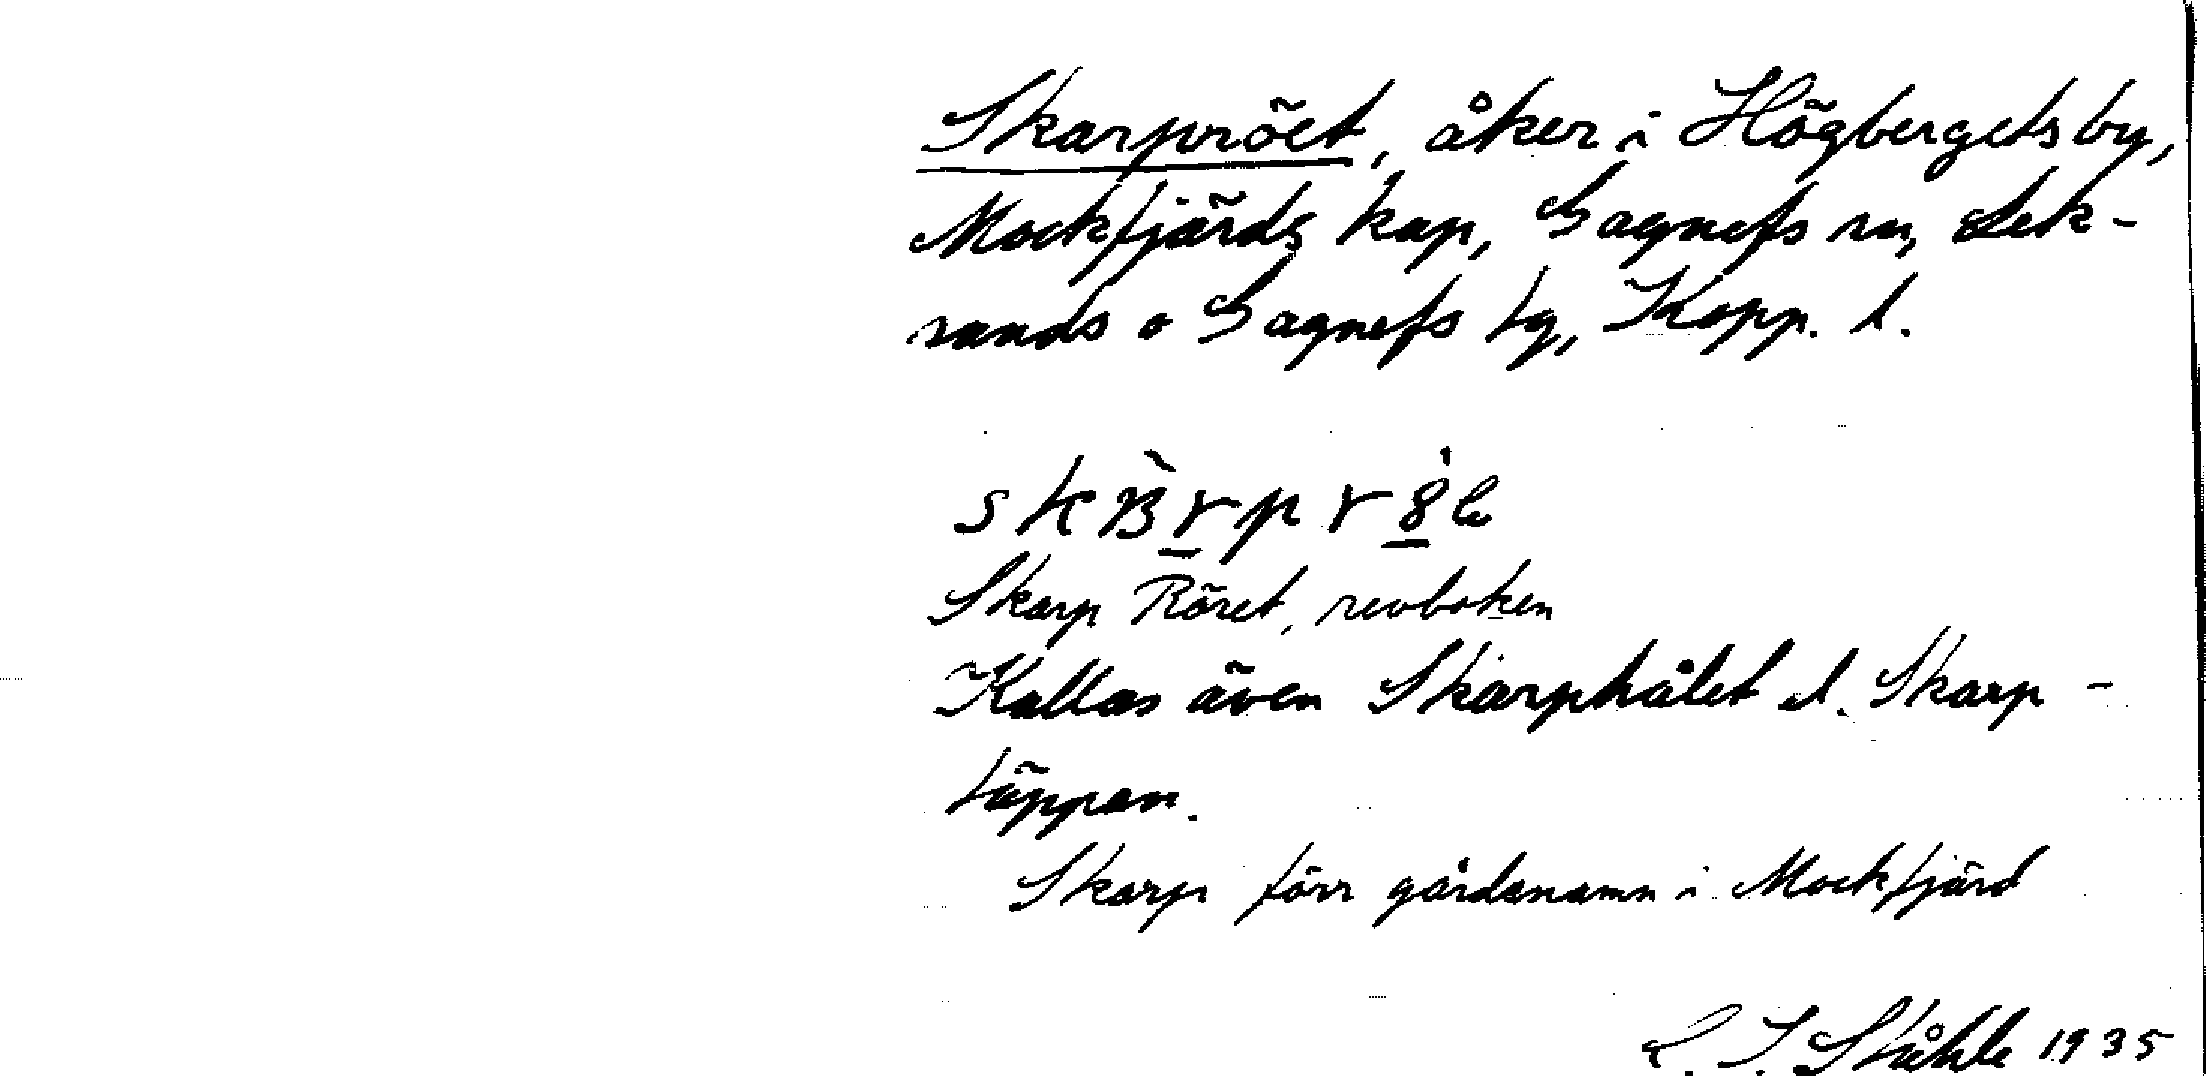 Skarpröet, åker i Högbergets by,
Mockfjärds kap, Gagnefs sn, Lek-
sands o Gagnefs tg, Kopp. l.
Skarp Röret, revboken
Kallas även Skarphålet el. Skarp -
täppan.
Skarp förr gårdsnamn i Mockfjärd
C. I. Ståhle 1935